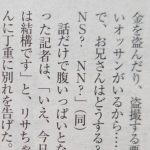 金を盗んだり、盗撮する悪
いオッサンがいるから…
で、お兄さんはどうする？
NS？　NN？」（同）
　話だけで腹いっぱいとな
った記者は、「いえ、今日
は結構です」と、リサちゃ
んに丁重に別れを告げた。